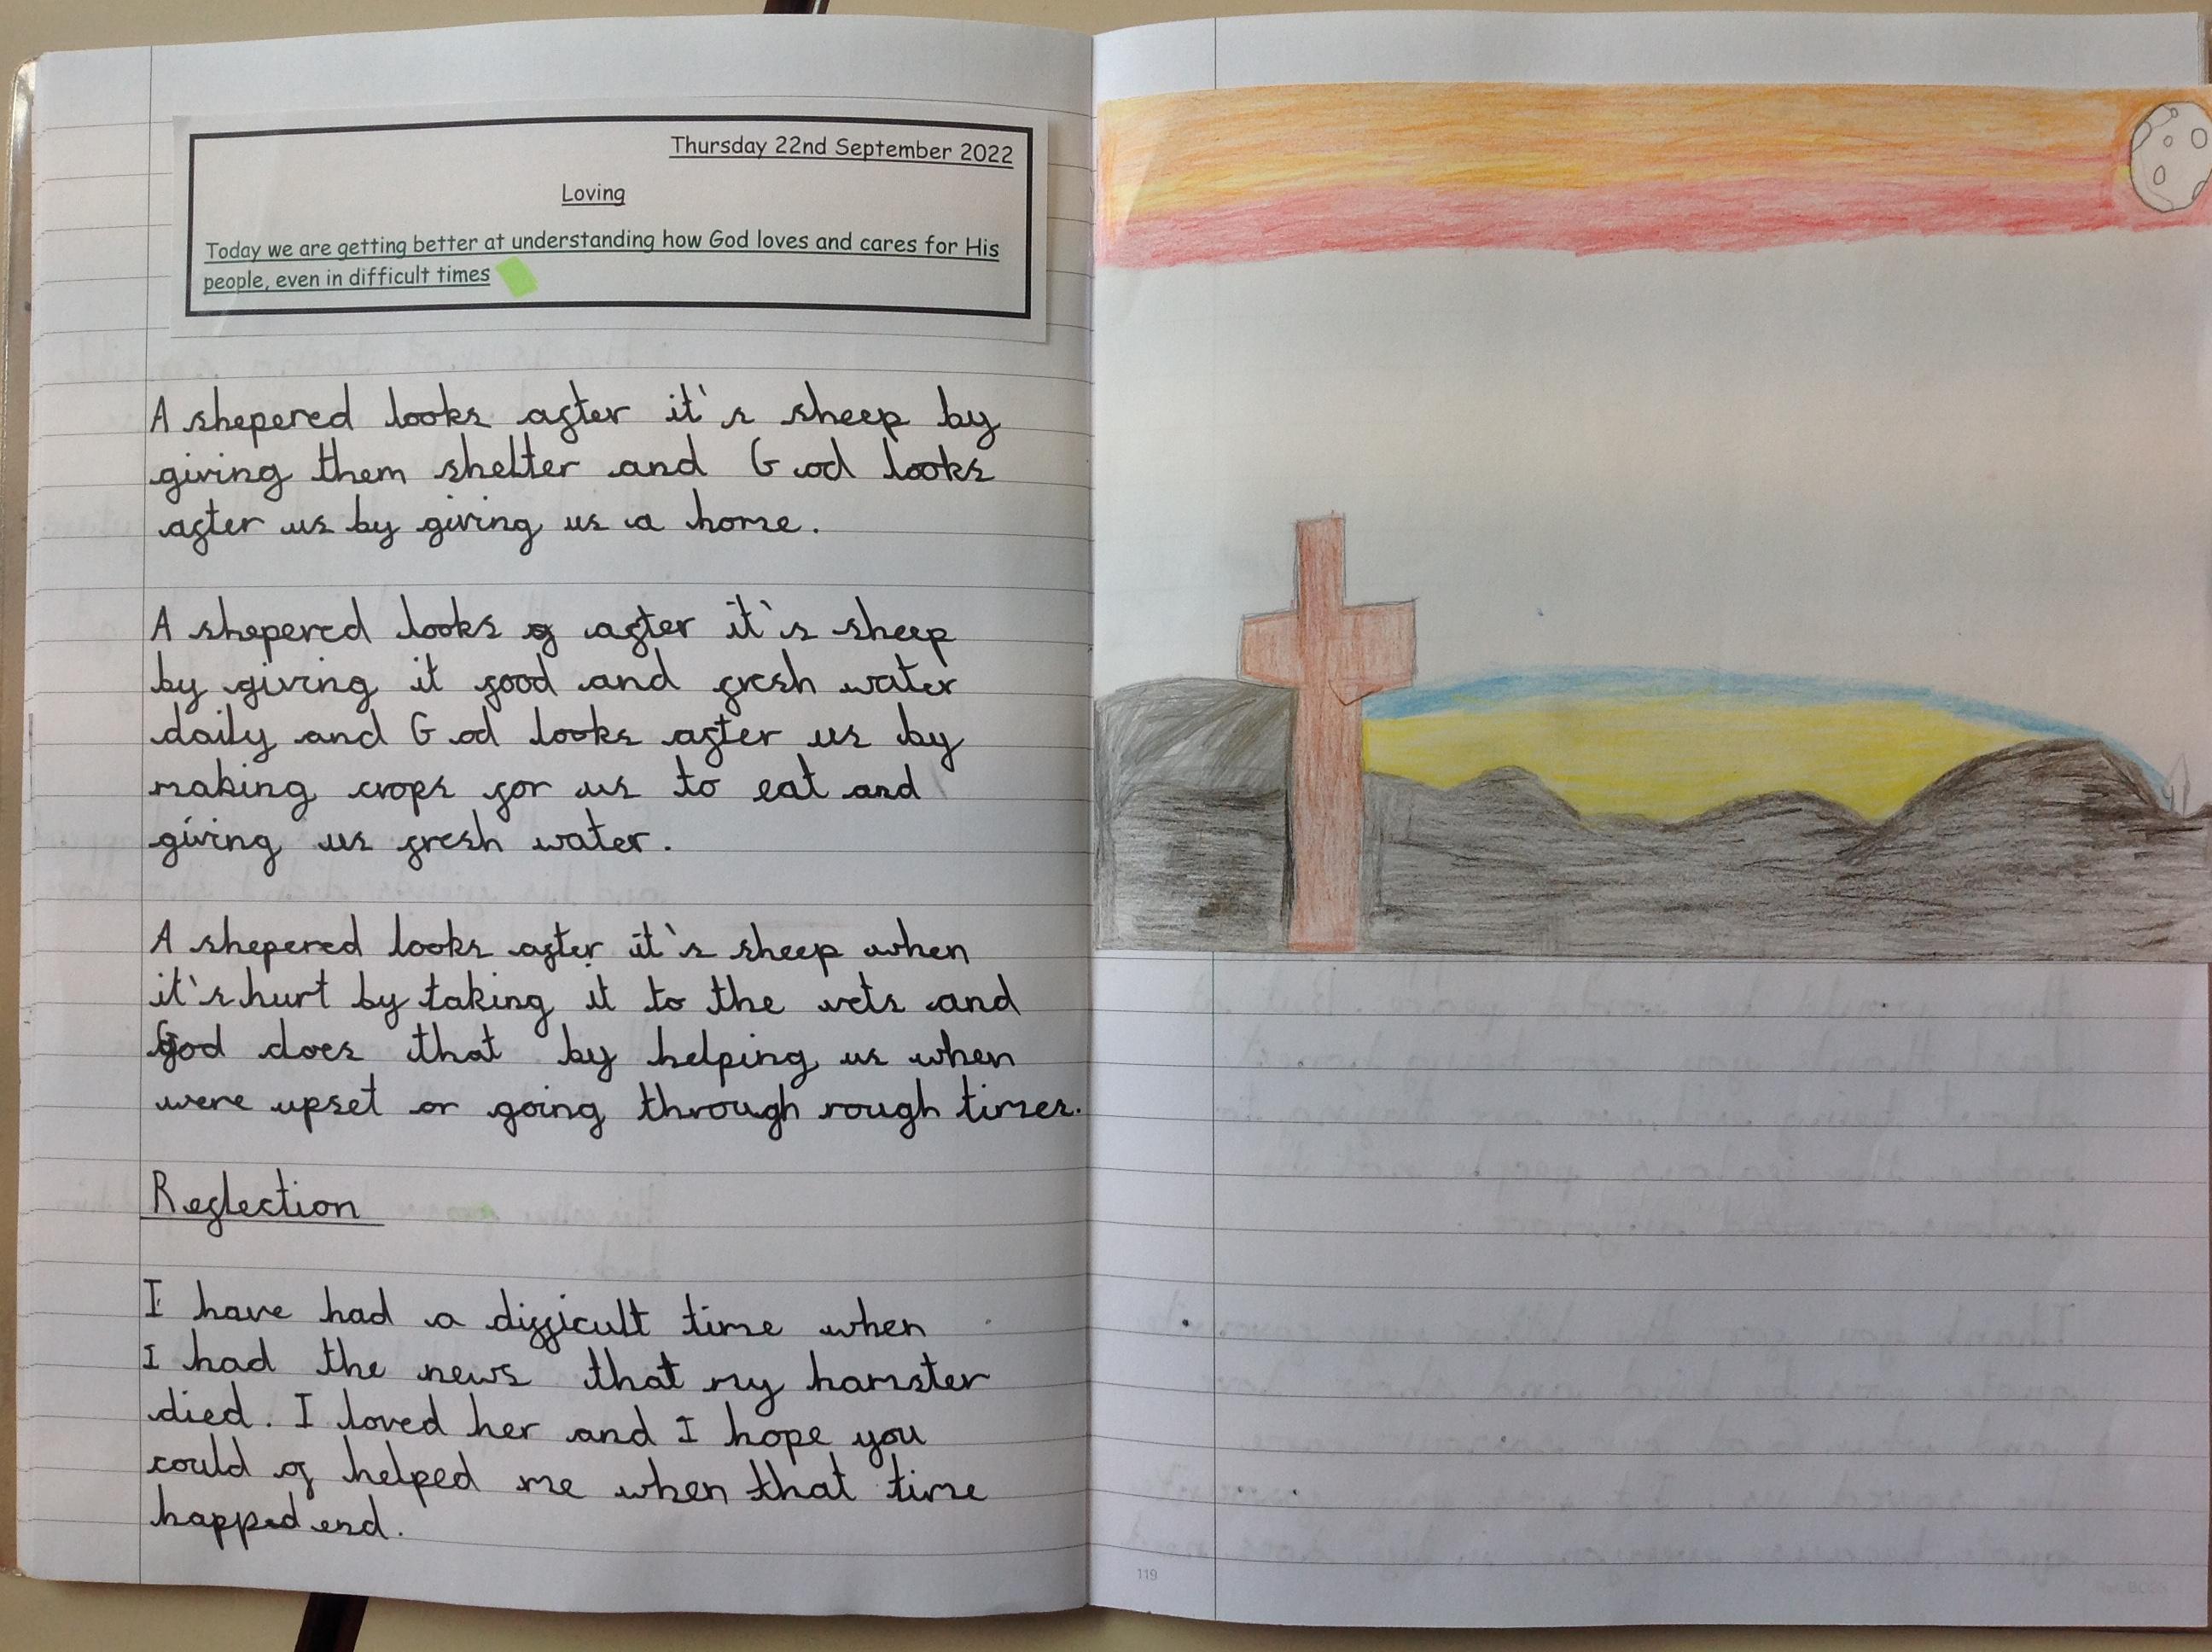 Thursday 22nd September 2022
Loving
Today we are getting better at understanding how God loves and cares for His
people, even in difficult times
A shepered looks after it's sheep by
giving them shelter and God looks
after us by giving us a home.
A shepered looks after it's sheep
by giving it food and fresh water
daily and God looks after us by
making crops for us to eat and
giving us fresh water.
A shepered looks after it's sheep when
it's hurt by taking it to the vets and
God does that by helping us when
were upset or going through rough times.
Reflection
I have had a difficult time when
I had the news that my hamster
died. I loved her and I hope you
could of helped me when that time
happend end.
119